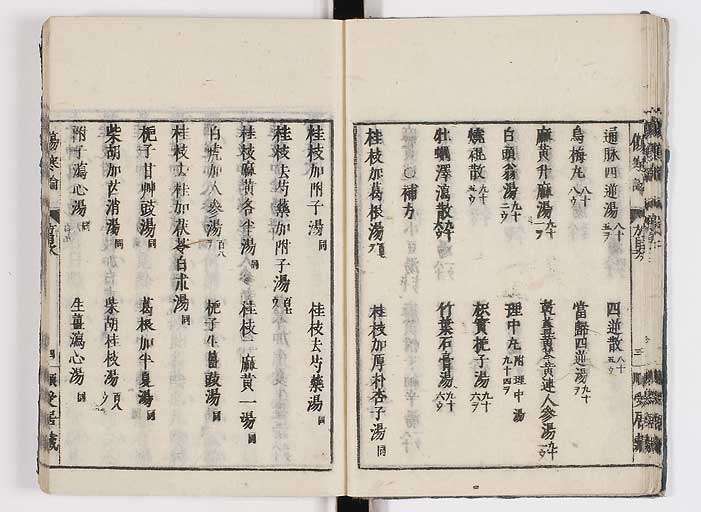 通脉四逆湯 八十五ウ 四逆散 八十五ウ
烏梅丸 八十八ウ 當歸四逆湯 九十ヲ
麻黄升麻湯 九十一ヲ 黄連人參湯
白頭翁湯 九十二ウ 理中丸 附理中湯 九十四ヲ
燒裩散 九十五ウ 枳實梔子湯 九十六ウ
牡蠣澤瀉散 竹葉石膏湯 九十六ウ
〇補方
桂枝加葛根湯 桂枝加厚朴杏子湯 同
桂枝加附子湯 同 桂枝去芍藥湯 同
桂枝去芍藥加附子湯
桂枝麻黄各半湯 同 桂枝二麻黄一湯 同
白虎加人參湯 梔子生薑豉湯 同
桂枝去桂加茯苓白朮湯 同
梔子甘艸豉湯 同 葛根加半夏湯 同
柴胡加芒消湯 同 柴胡桂枝湯
附子瀉心湯 同 生薑瀉心湯 同
傷寒論
四